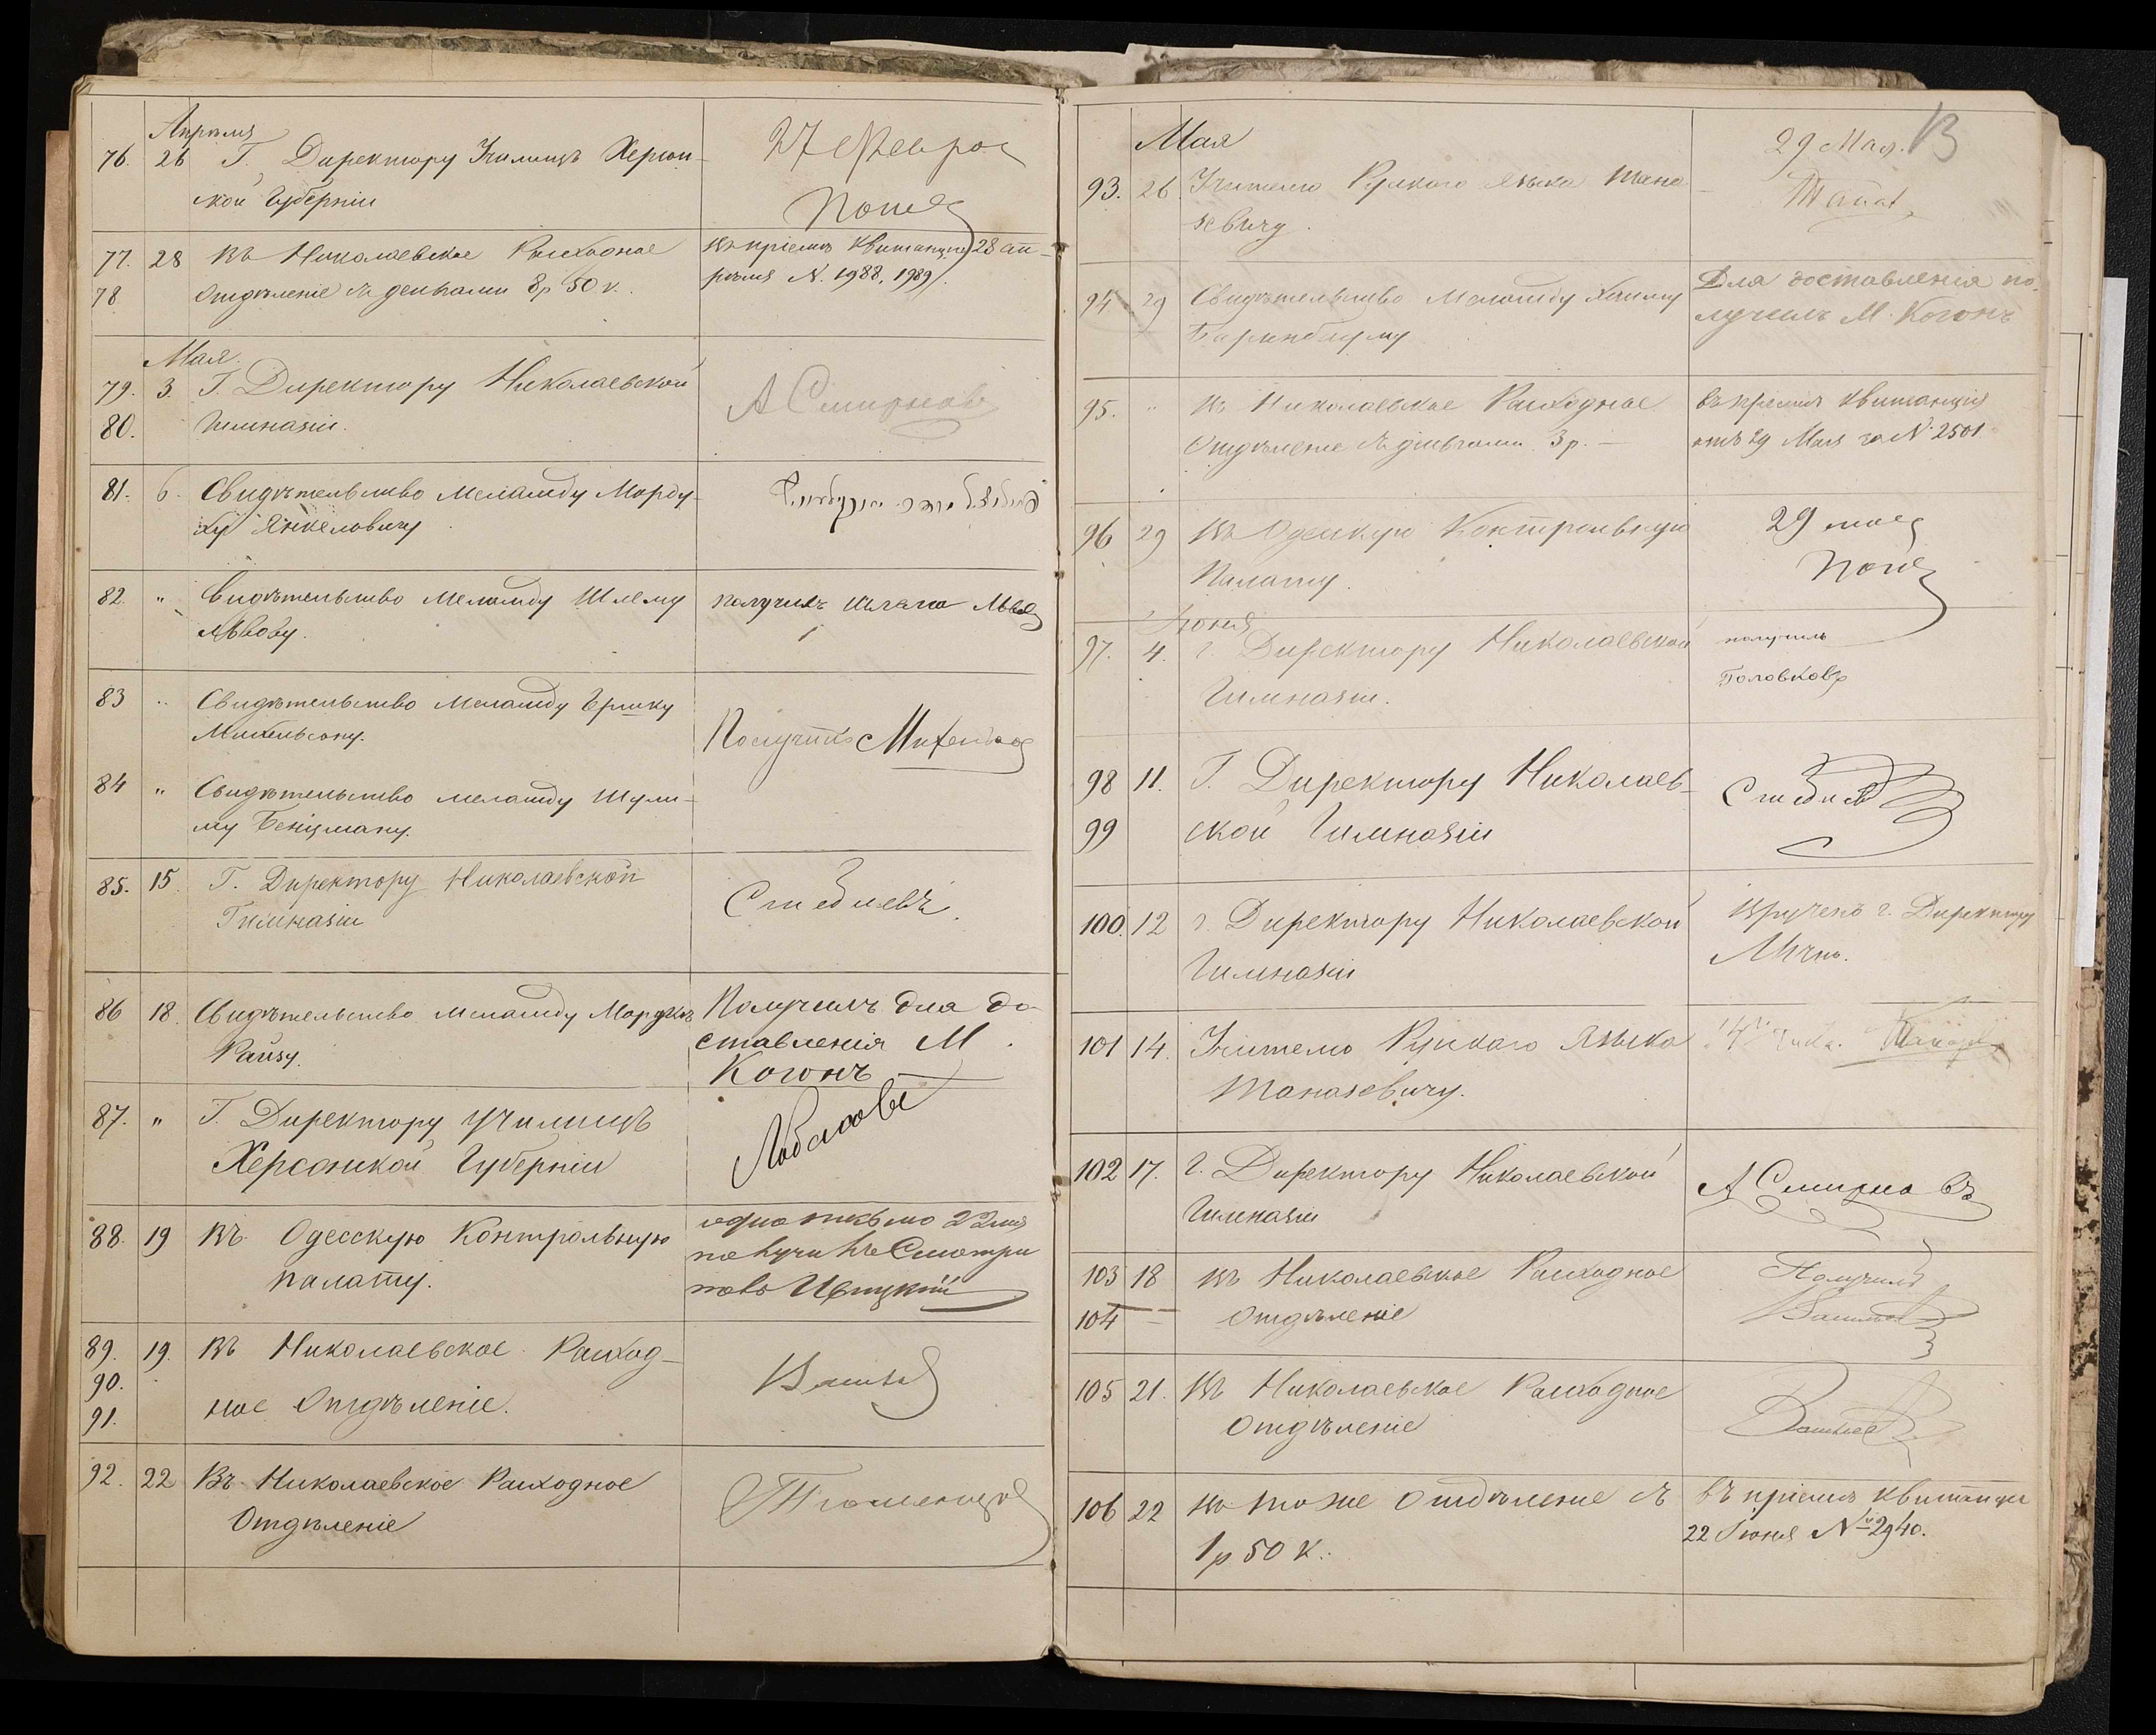 Апрѣля
76. 26 Г. Директору Училищъ Херсон-
ской Губерніи
77. 28 Въ Николаевское Расходное
78 Отдѣленіе съ деньгами 8 р 50 к.
въ пріемѣ квитанціи 28 ап-
рѣля N. 1988, 1989.
Мая.
79. 3. Г. Директору Николаевской
80. Гимназіи.
А Смирновъ
81. 6. Свидѣтельство меламду Морду-
ху Янкеловичу
82. " Свидѣтельство меламду Шлему
Львову.
получилъ
83 " Свидѣтельство меламду Гершку
Михельсону.
Получилъ Михельсон
84 " Свидѣтельство меламду Шули-
му Бенцману.
85. 15 Г. Директору Николаевской
Гимназіи
86 18. Свидѣтельство меламду Мордкѣ
Райзу.
Получилъ для до-
ставленія М.
Когонъ
87. " Г. Директору Училищъ
Херсонской Губерніи
88. 19 Въ Одесскую Контрольную
палату.
одно письмо 22 мая
получилъ Смотри
89. 19. Въ Николаевское Расход-
90.
91. ное Отдѣленіе.
92. 22 Въ Николаевское Расходное
Отдѣленіе
13
Мая
93. 26. Учителю Русскаго Языка Тана-
севичу.
29 Мая.
94 29 Свидѣтельство Меламду Хаиму
Баринблуму
Для доставленія по-
лучилъ М. Когонъ
95. " Въ Николаевское Расходное
Отдѣленіе съ деньгами 3 р. —
въ пріемѣ квитанція
отъ 29 Мая за N. 2501
96 29 Въ Одесскую Контрольную
Палату.
29 мая
Іюня
97. 4. г. Директору Николаевской
Гимназіи.
получилъ
Головковъ
98 11. Г. Директору Николаев-
99 ской Гимназіи
100. 12 г. Директору Николаевской
Гимназіи
Врученъ г. Директору
Лично.
101 14. Учителю Русскаго Языка
Танасевичу.
102 17. г. Директору Николаевской
Гимназіи
А Смирновъ
103 18 Въ Николаевское Расходное
104 — Отдѣленіе
Получилъ
105 21. Въ Николаевское Расходное
Отдѣленіе
106 22 Въ тоже Отдѣленіе съ
1 р 50 к.
въ пріемѣ квитанція
22 Іюня № 2940.